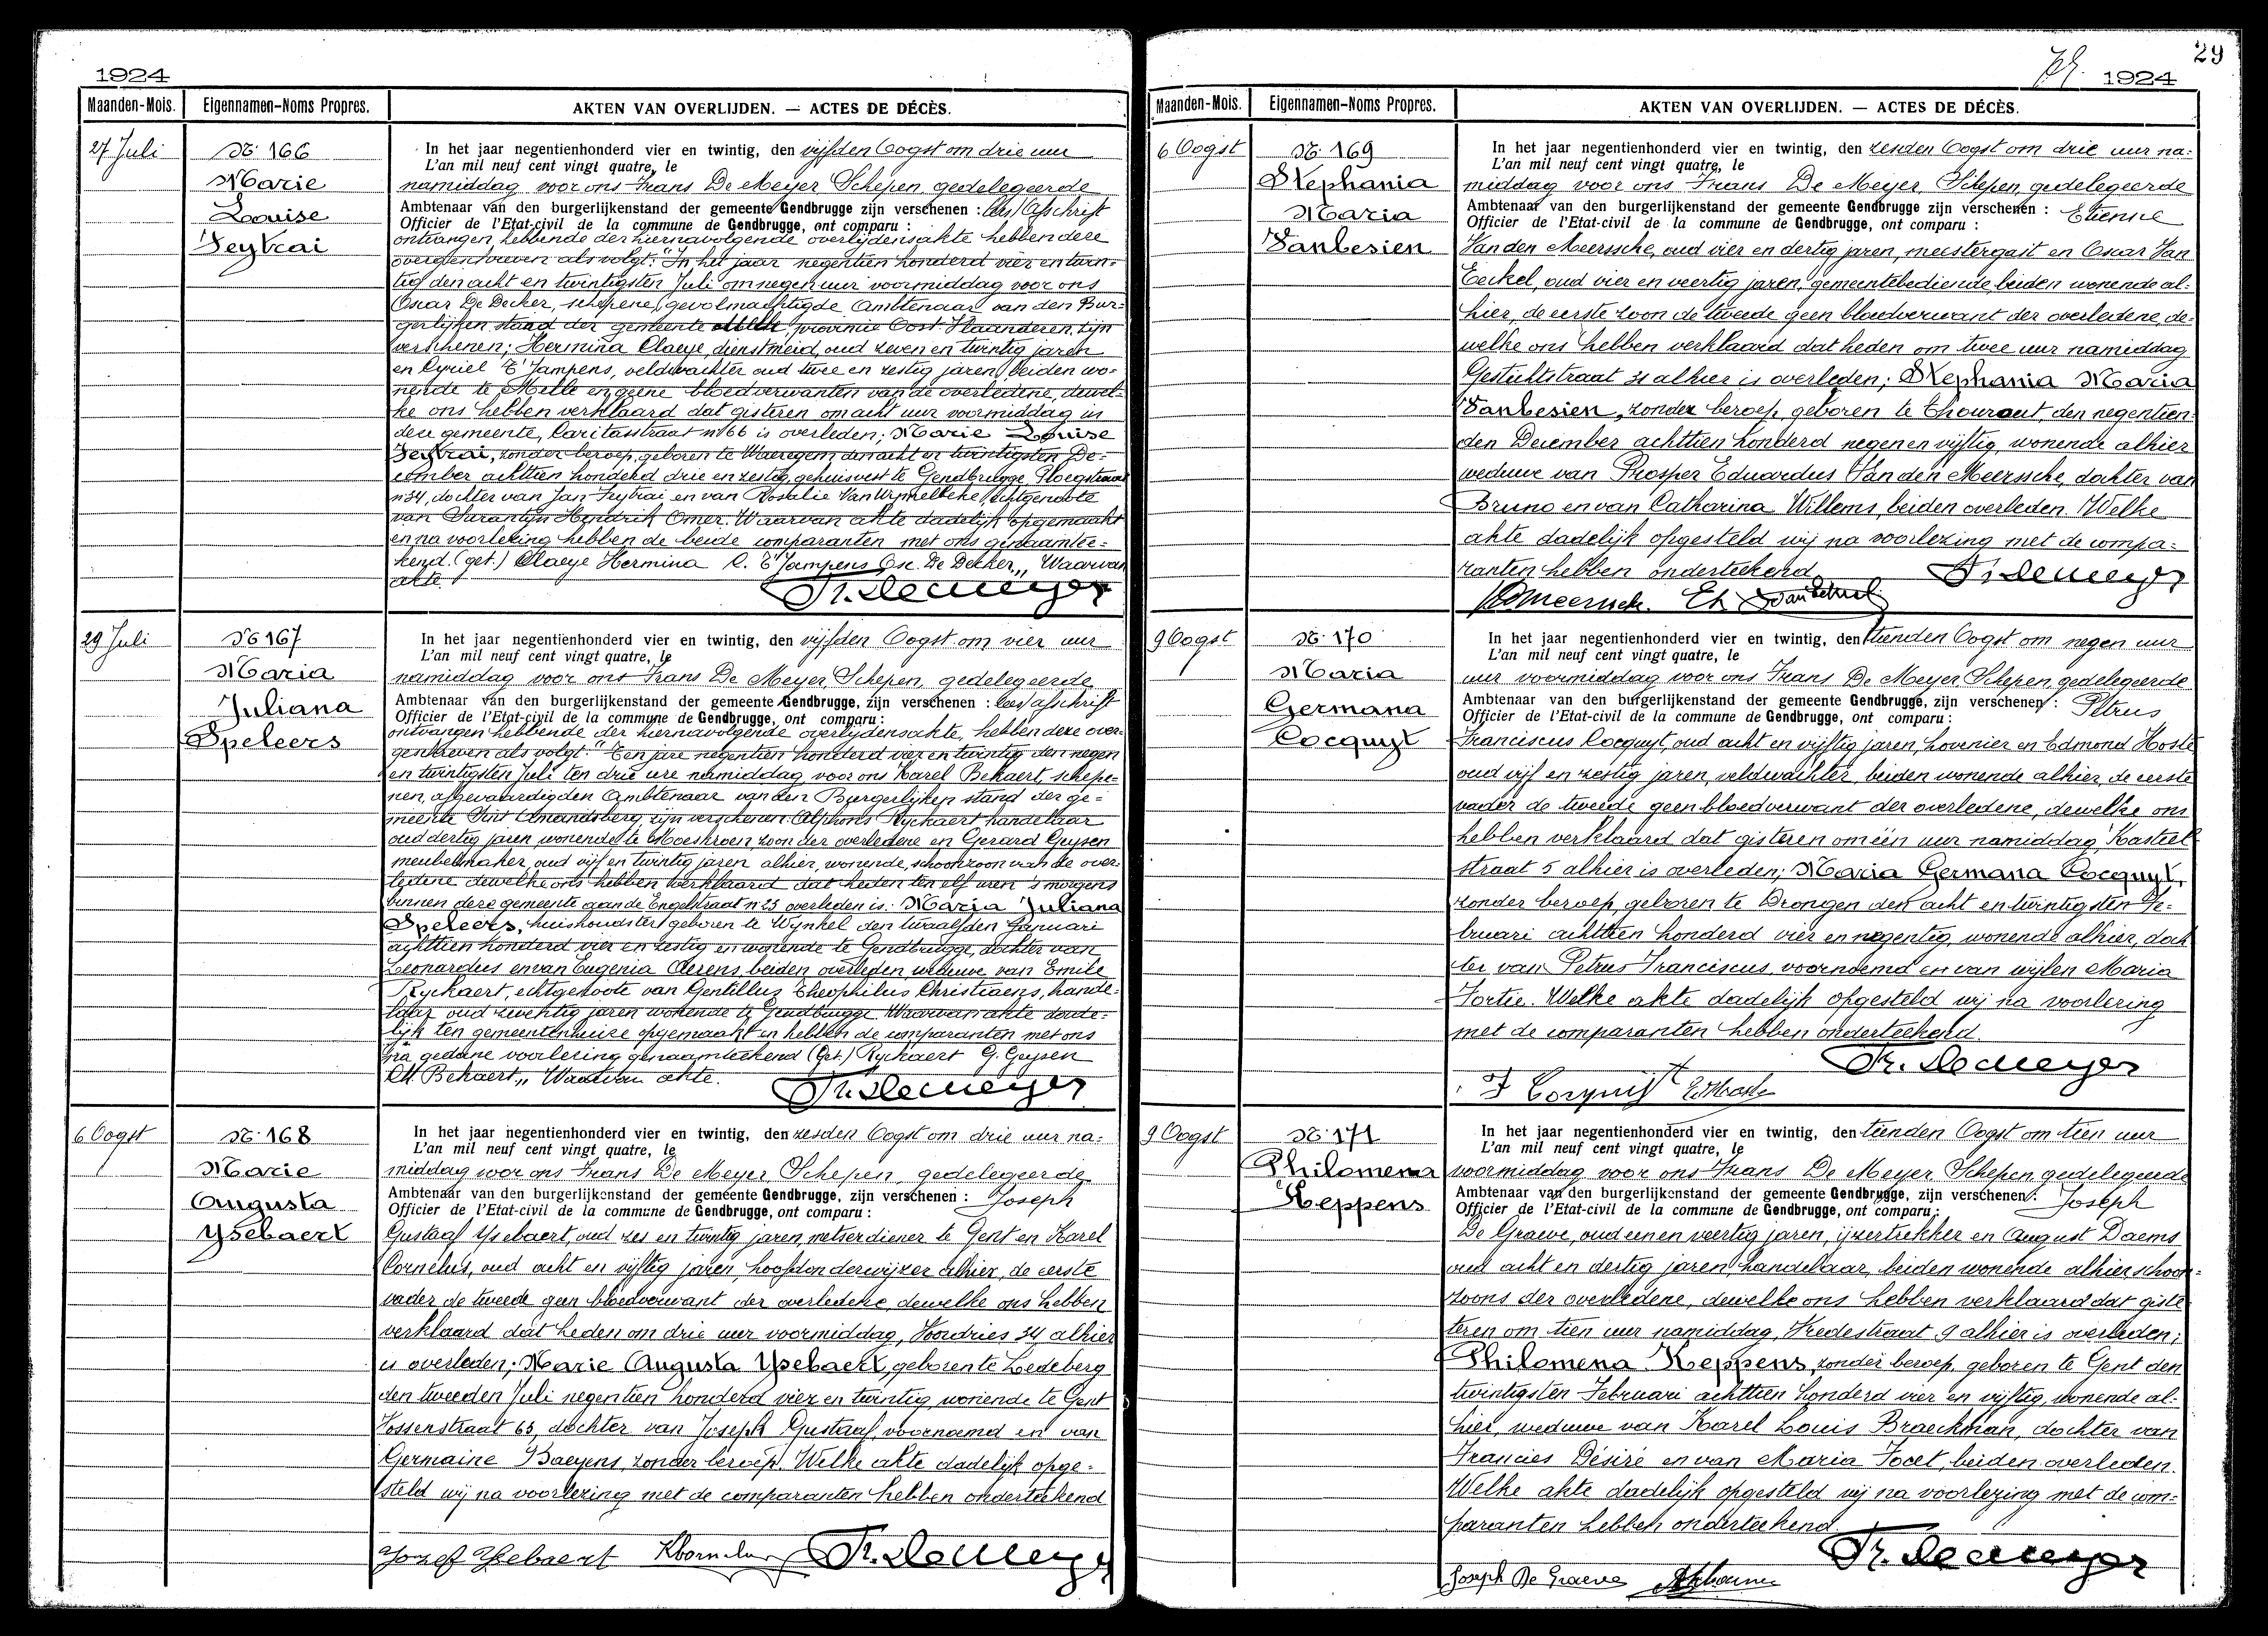 1924
Maanden-Mois. Eigennamen-Noms Propres. AKTEN VAN OVERLIJDEN. — ACTES DE DÉCÈS.
27 Juli
Nr. 166
Marie
Louise
Seytrai
In het jaar negentienhonderd vier en twintig, den vijfden Oogst om drie uur
L'an mil neuf cent vingt quatre, le
namiddag voor ons Frans De Meyer Schepen, gedelegeerde
Ambtenaar van den burgerlijkenstand der gemeente Gendbrugge zijn verschenen : lees/ Afschrift
Officier de l'Etat-civil de la commune de Gendbrugge, ont comparu :
ontvangen hebbende der hiernavolgende overlijdensakte hebben deze
overgeschreven als volgt: "In het jaar negentien honderd vier en twin-
tig den acht en twintigsten Juli om negen uur voormiddag voor ons
Oscar De Decker, schepene, gevolmachtigde Ambtenaar van den Bur-
gerlijken stand der gemeente Melle provincie Oost-Vlaanderen, zijn
verschenen; Hermina Claeye, dienstmeid, oud zeven en twintig jaren
en Cyriel T'Jampens, veldwachter oud twee en zestig jaren, beiden wo-
nende te Melle en geene bloedverwanten van de overledene, dewel-
ke ons hebben verklaard dat gisteren om acht uur voormiddag in
deze gemeente, Caritasstraat n 66 is overleden; Marie Louise
Seytrai, zonder beroep, geboren te Waeregem den acht en twintigsten De-
cember achttien honderd drie en zestig, gehuisvest te Gendbrugge Ploegstraat
n 34, dochter van Jan Seytrai en van Rosalie Van Wynselbeke, echtgenoote
van Sarantyn Hendrik Omer. Waarvan akte dadelijk opgemaakt
en na voorlezing hebben de beide comparanten met ons genaamtee-
kend. (get.) Claeye Hermina C. T'Jampens Osc. De Decker,, Waarvan
akte.
Fr. Demeyer
29 Juli
Nr 167
Maria
Juliana
Speleers
In het jaar negentienhonderd vier en twintig, den vijfden Oogst om vier uur
L'an mil neuf cent vingt quatre, le
namiddag voor ons Frans De Meyer Schepen, gedelegeerde
Ambtenaar van den burgerlijkenstand der gemeente Gendbrugge, zijn verschenen : lees/ afschrift
Officier de l'Etat-civil de la commune de Gendbrugge, ont comparu :
ontvangen hebbende der hiernavolgende overlijdensakte, hebben deze over-
geschreven als volgt: "Een jare negentien honderd vier en twintig den negen
en twintigsten Juli ten drie ure namiddag, voor ons Karel Bekaert, schepe-
nen, afgevaardigden Ambtenaar van den Burgerlijken stand der ge-
meente Sint Amandsberg, zijn verschenen: Alphons Ryckaert handelaar
oud dertig jaren wonende te Moeskroen, zoon der overledene en Gerard Geysen
meubelmaker, oud vijf en twintig jaren alhier, wonende, schoonzoon van de over-
ledene dewelke ons hebben verklaard dat heden ten elf uren 's morgens
binnen deze gemeente aan de Engelstraat n 25 overleden is: Maria Juliana
Speleers, huishoudster geboren te Wynkel den twaalfden Januari
achttien honderd vier en zestig en wonende te Gendbrugge, dochter van
Leonardus en van Eugenia Aerens, beiden overleden weduwe van Emile
Ryckaert, echtgenoote van Gentillus Theophilus Christiaens, hande-
laar oud zeventig jaren wonende te Gendbrugge. Waarvan akte dade-
lijk ten gemeentenhuize opgemaakt en hebben de comparanten met ons
na gedane voorlezing genaamteekend (Get.) Ryckaert G. Geysen
Ch. Bekaert,, Waarvan akte.
Fr. Demeyer
6 Oogst
Nr. 168
Marie
Augusta
Ysebaert
In het jaar negentienhonderd vier en twintig, den zesden Oogst om drie uur na-
L'an mil neuf cent vingt quatre, le
middag voor ons Frans De Meyer Schepen, gedelegeerde
Ambtenaar van den burgerlijkenstand der gemeente Gendbrugge, zijn verschenen : Joseph
Officier de l'Etat-civil de la commune de Gendbrugge, ont comparu :
Gustaaf Ysebaert, oud zes en twintig jaren, metserdiener te Gent en Karel
Cornelus, oud acht en vijftig jaren, hoofdonderwijzer alhier, de eerste
vader de tweede geen bloedverwant der overledene, dewelke ons hebben
verklaard dat heden om drie uur voormiddag, Voordries 34 alhier
is overleden; Marie Augusta Ysebaert, geboren te Ledeberg
den tweeden Juli negentien honderd vier en twintig, wonende te Gent
Vossenstraat 63, dochter van Joseph Gustaaf, voornoemd en van
Germaine Baeyens, zonder beroep. Welke akte dadelijk opge-
steld wij na voorlezing met de comparanten hebben onderteekend
Jozef Ysebaert KCornelus Fr. Demeyer
29
1924
Maanden-Mois. Eigennamen-Noms Propres. AKTEN VAN OVERLIJDEN. — ACTES DE DÉCÈS.
6 Oogst
Nr. 169
Stephania
Maria
Vanbesien
In het jaar negentienhonderd vier en twintig, den zesden Oogst om drie uur na-
L'an mil neuf cent vingt quatre, le
middag voor ons Frans De Meyer, Schepen, gedelegeerde
Ambtenaar van den burgerlijkenstand der gemeente Gendbrugge zijn verschenen : Etienne
Officier de l'Etat-civil de la commune de Gendbrugge, ont comparu :
Van den Meerssche, oud vier en dertig jaren, meestergast en Oscar Van
Eeckel, oud vier en veertig jaren, gemeentebediende, beiden wonende al-
hier, de eerste zoon de tweede geen bloedverwant der overledene, de-
welke ons hebben verklaard dat heden om twee uur namiddag
Gestichtstraat 31 alhier is overleden; Stephania Maria
Vanbesien, zonder beroep, geboren te Thourout den negentien-
den December achttien honderd negen en vijftig, wonende alhier
weduwe van Prosper Eduardus Van den Meerssche, dochter van
Bruno en van Catharina Willems, beiden overleden. Welke
akte dadelijk opgesteld wij na voorlezing met de compa-
ranten hebben onderteekend
Fr. Demeyer
9 Oogst
Nr. 170
Maria
Germana
Cocquyt
In het jaar negentienhonderd vier en twintig, den tienden Oogst om negen uur
L'an mil neuf cent vingt quatre, le
uur voormiddag voor ons Frans De Meyer Schepen, gedelegeerde
Ambtenaar van den burgerlijkenstand der gemeente Gendbrugge, zijn verschenen : Petrus
Officier de l'Etat-civil de la commune de Gendbrugge, ont comparu :
Franciscus Cocquyt, oud acht en vijftig jaren, hovenier en Edmond Hoste
oud vijf en zestig jaren, veldwachter, beiden wonende alhier, de eerste
vader de tweede geen bloedverwant der overledene, dewelke ons
hebben verklaard dat gisteren om één uur namiddag Kasteel-
straat 5 alhier is overleden; Maria Germana Cocquyt,
zonder beroep, geboren te Drongen den acht en twintigsten Fe-
bruari achttien honderd vier en negentig, wonende alhier, doch
ter van Petrus Franciscus, voornoemd en van wijlen Maria
Fortie. Welke akte dadelijk opgesteld wij na voorlezing
met de comparanten hebben onderteekend.
Fr. Demeyer
F Cocquijt E. Hoste
9 Oogst
Nr. 171
Philomena
Keppens
In het jaar negentienhonderd vier en twintig, den tienden Oogst om tien uur
L'an mil neuf cent vingt quatre, le
voormiddag voor ons Frans De Meyer, Schepen, gedelegeerde
Ambtenaar van den burgerlijkenstand der gemeente Gendbrugge, zijn verschenen : Joseph
Officier de l'Etat-civil de la commune de Gendbrugge, ont comparu :
De Graeve, oud een en veertig jaren, ijzertrekker en August Daems
oud acht en dertig jaren, handelaar, beiden wonende alhier, schoon-
zoons der overledene, dewelke ons hebben verklaard dat giste
teren om tien uur namiddag, Vredestraat 9 alhier is overleden;
Philomena Keppens, zonder beroep, geboren te Gent den
twintigsten Februari achttien honderd vier en vijftig, wonende al-
hier, weduwe van Karel Louis Braeckman, dochter van
Francies Désiré en van Maria Focet, beiden overleden.
Welke akte dadelijk opgesteld wij na voorlezing met de com-
paranten hebben onderteekend
Fr. Demeyer
Joseph De Graeve